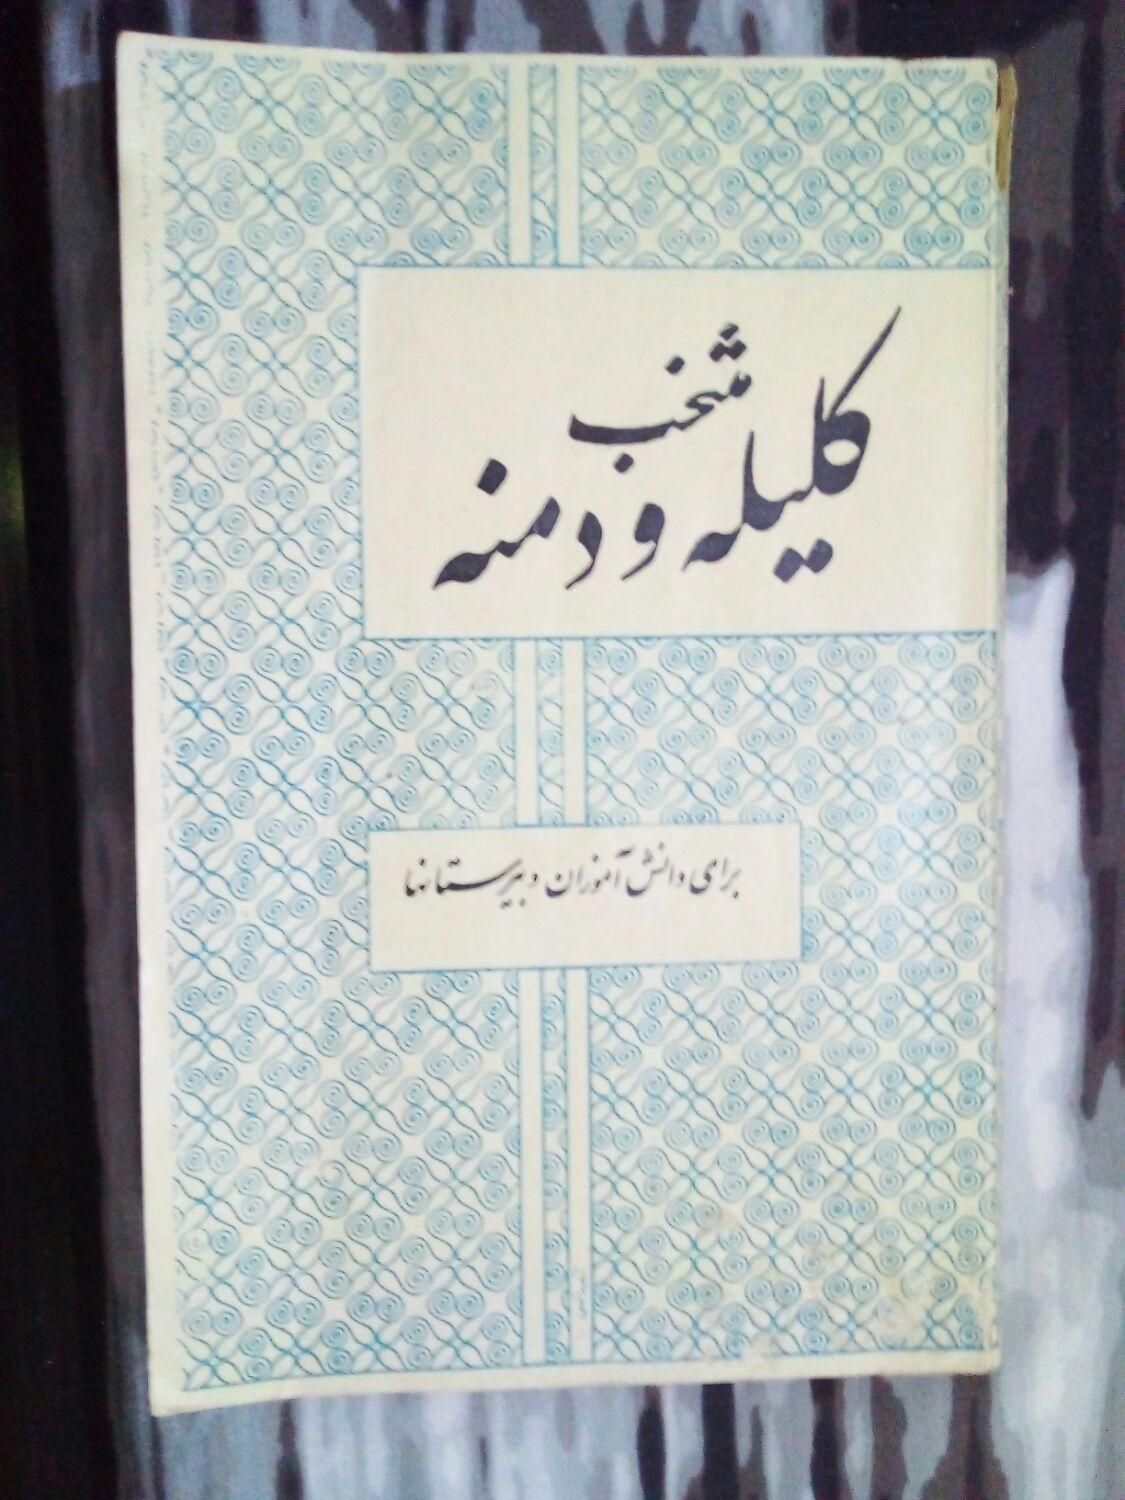 منتخب
کلیله و دمنه
برای دانش آموزان دبیرستانها